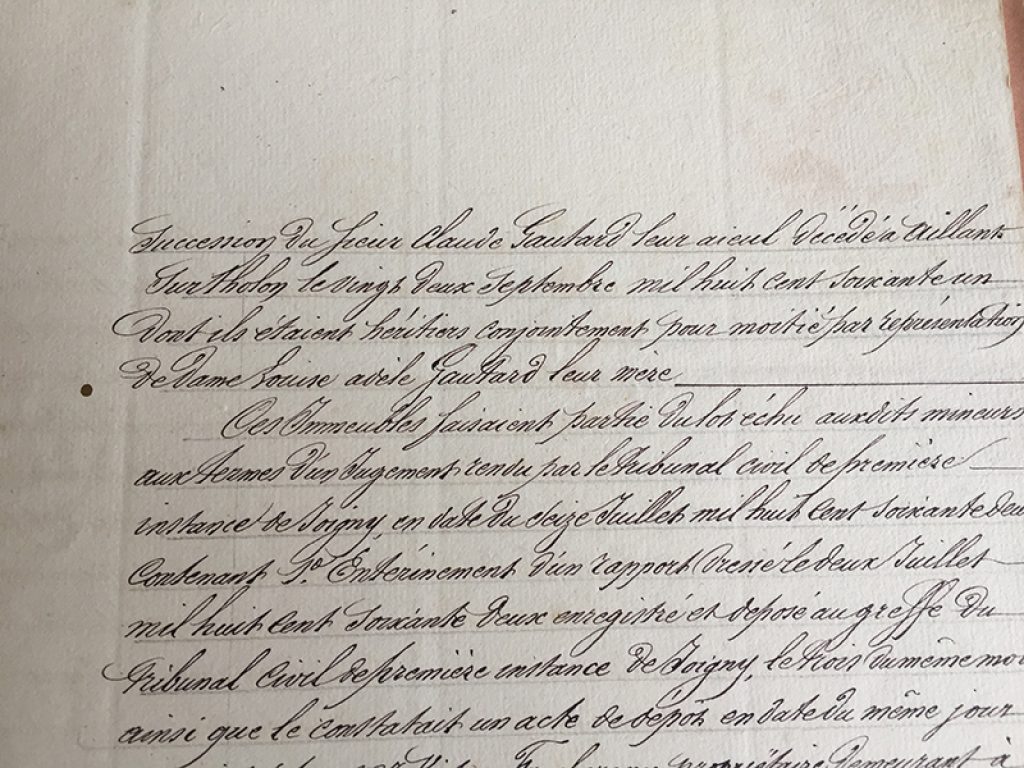 Succession du sieur Claude Gautard leur aieul décédé à Aillant
Sur Tholon le vingt deux septembre mil huit cent soixante un
dont ils étaient héritiers conjointement pour moitié par représentation
de dame Louise adèle Gautard leur mère
Ces Immeubles faisaient partie du lot échu auxdits mineurs
aux termes d'un Jugement rendu par le tribunal civil de première
instance de Joigny, en date du seize Juillet mil huit cent soixante deux
Contenant 1º Entérinement d'un rapport dressé le deux Juillet
mil huit cent soixante deux enregistré et déposé au greffe du
tribunal civil de première instance de Joigny, le trois du même moi
ainsi que le constatait un acte de dépôt en date du même jour
propriétaire demeurant à